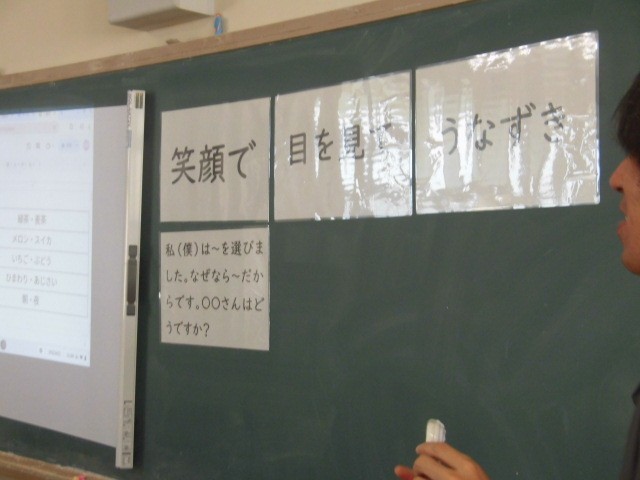 笑顔で
目を見て
うなずき
私(僕)は~を選びま
した。なぜなら~だか
らです。○○さんはど
うですか?
メロン・スイカ
いちご・ぶどう
ひまわり・あじさい
朝・夜